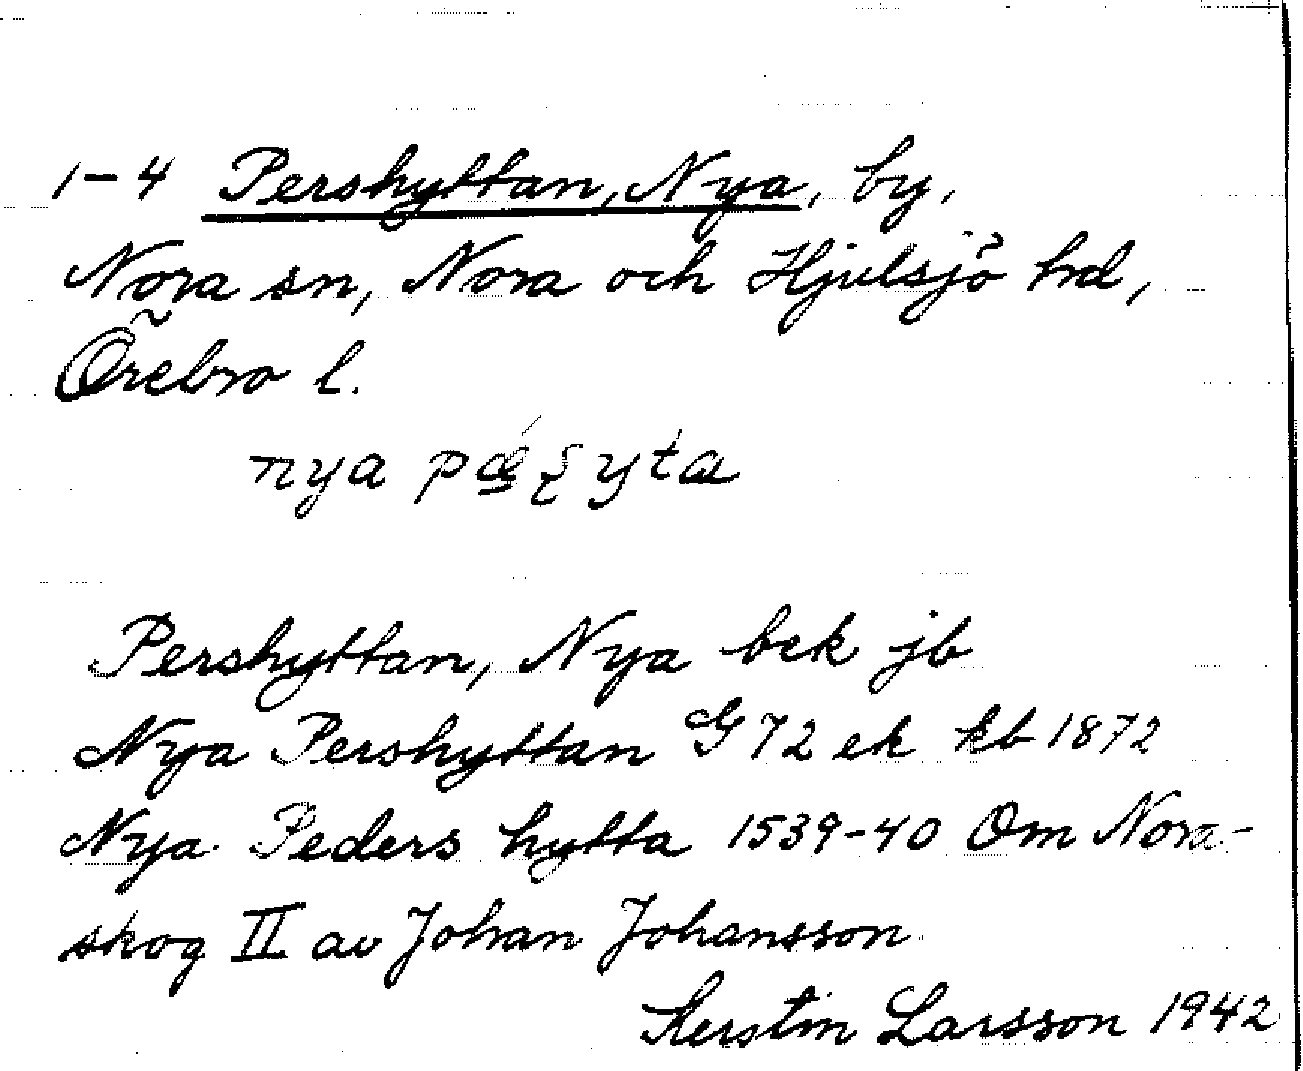 1-4 Pershyttan, Nya, by,
Nora sn, Nora och Hjulsjö hrd,
Örebro l.
nya pǽ̱ʂyta
Pershyttan, Nya bek jb
Nya Pershyttan G 72 ek kb 1872
Nya Peders hytta 1539-40 Om Nora-
skog II av Johan Johansson
Kerstin Larsson 1942